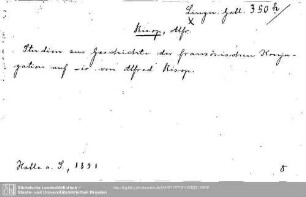 Lingu. Gall. 350 h/
x
Risop, Alfr.
Studien zur Geschichte der französischen Konju-
gation auf -ir von Alfred Risop.
Halle a. S., 1891
8
Sächsische Landesbibliothek -
Staats- und Universitätsbibliothek Dresden